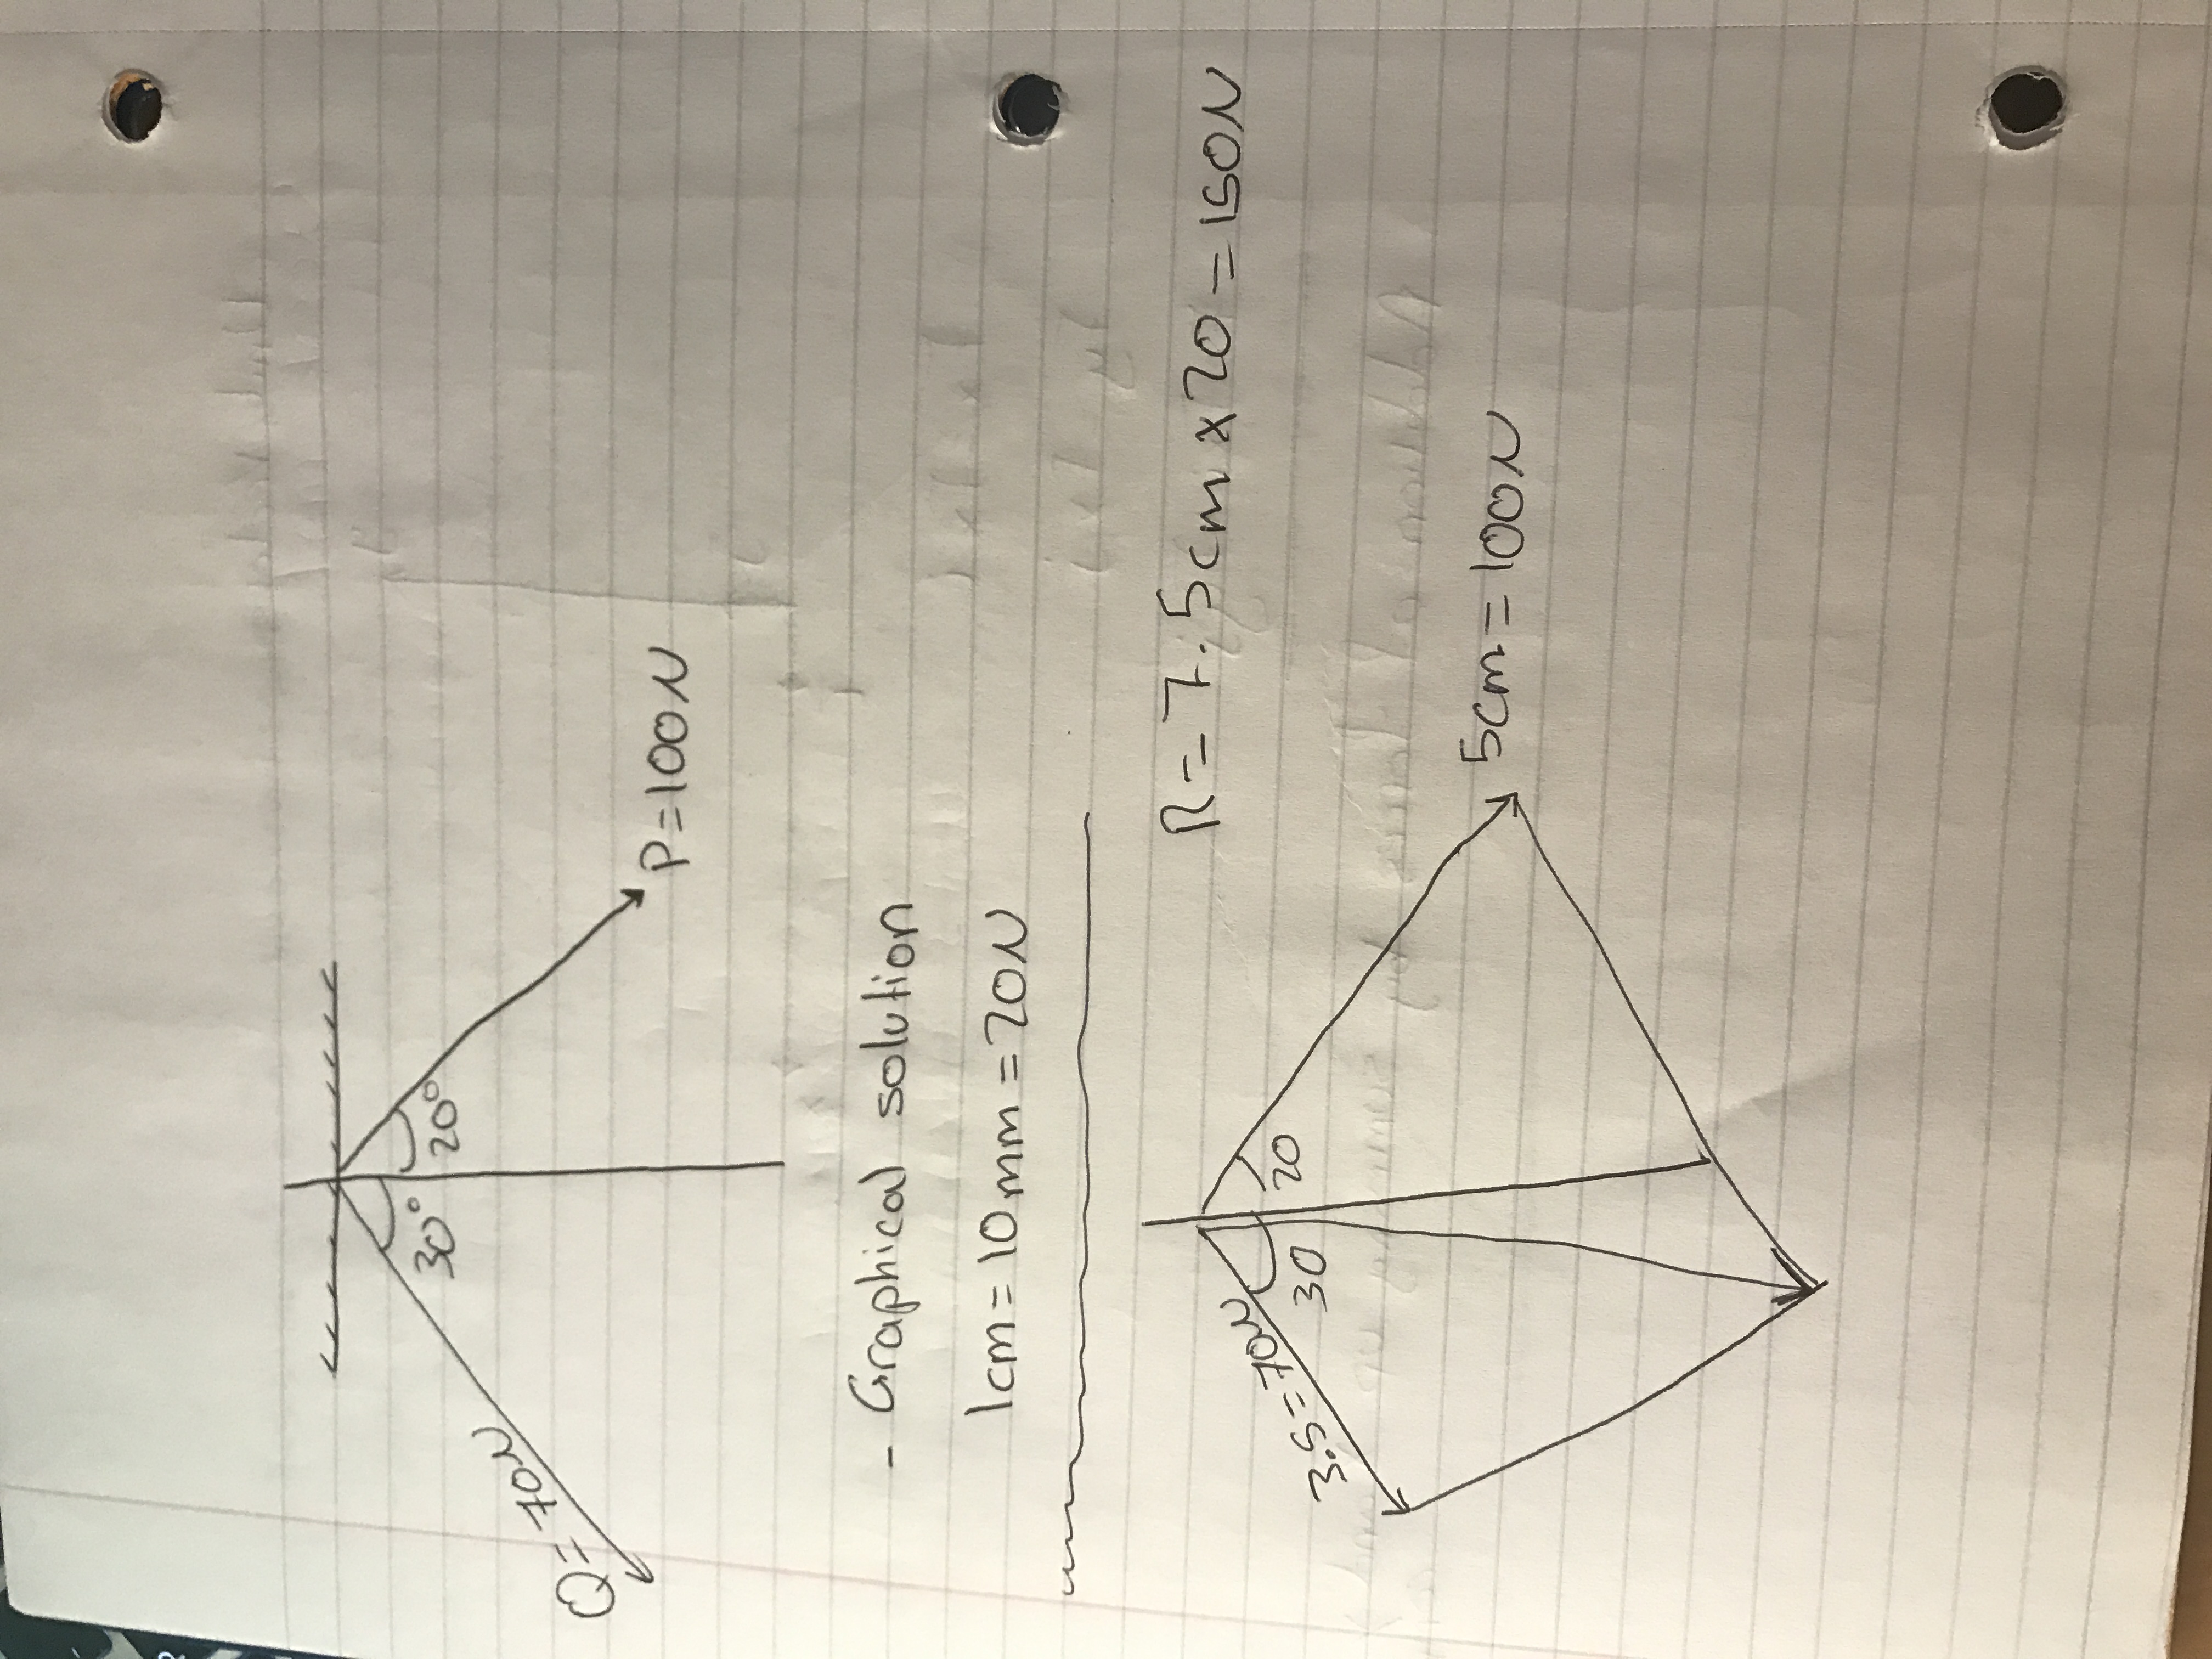 30° 20°
Q=70N
P=100N
- Graphical solution
1cm=10mm=20N
R=7.5cm x 20=150N
30 20
3.5=70N
5cm=100N